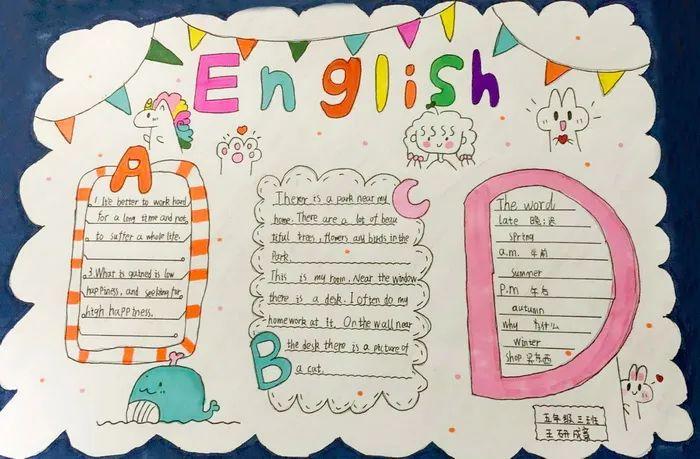 English
A
1 It's better to work hard
for a long time and not
to suffer a whole life.
3. What is gained is low
happiness, and seeking for
high happiness.
B
There is a park near my
home. There are a lot of beau
tiful trees, flowers any birds in the
Park.
This is my room. Near the window
there is a desk. I often do my
homework at it. On the wall near
the desk there is a picture of
a cat.
D
The word
late 晚;迟
spring
a.m. 午前
summer
P.m 午后
autumn
why 为什么
winter
shop 买东西
五年级三班
王研成